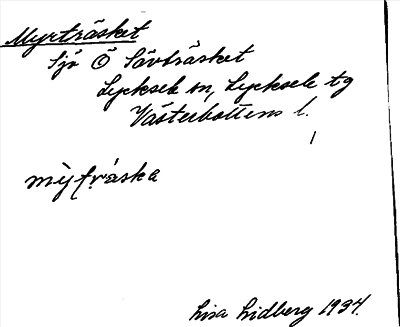 Myrträsket
Sjö Ö Lövträsket
Lycksele sn, Lycksele tg
Västerbottens l.
Lisa Lidberg 1934.